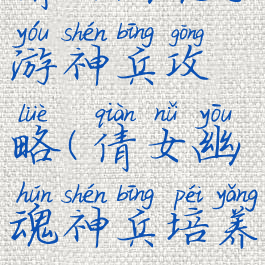 yóu shén bīng gōng
游神兵攻
lüè qiàn nǚ yōu
略(倩女幽
hún shén bīng péi yǎng
魂神兵培养